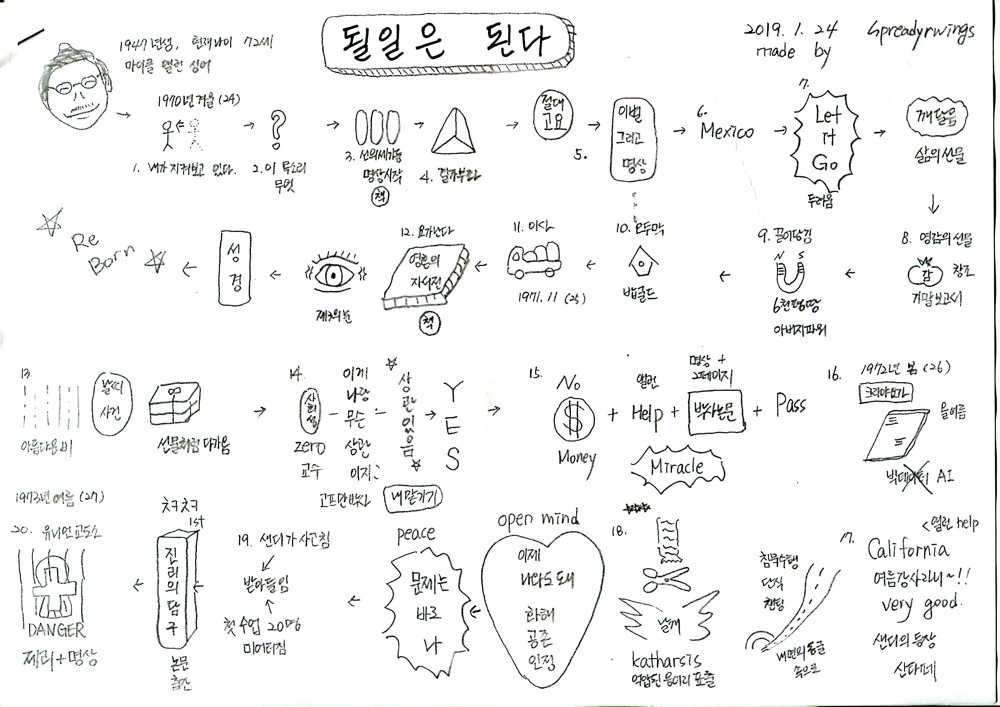 될일은 된다
2019. 1. 24 Spreadyrwings
made by
1947년생, 현재나이 72세
마이클 앨런 싱어
1970년 겨울 (24)
1. 내가 지켜보고 있다.
?
2. 이 목소리
무엇
3. 선의 세기둥
명상시작
책
4. 결가부좌
절대
고요
5.
이별
그리고
명상
6.
Mexico
7.
Let
it
Go
두려움
깨달음
삶의 선물
8. 영감의 선물
잠
창조
기말보고서
9. 끌어당김
N S
6천평땅
아버지파워
10. 오두막
밥굴드
11. 이사
1971. 11 (25)
12. 요가난다
영혼의
자서전
책
제3의 눈
성
경
Re
Born
13
아름다운 비
날씨
사건
선물처럼 다가옴
14.
사회성
zero
교수
이게
나랑
무슨
상관
이지?
고프만박사
상관있음
내맡기기
Y
E
S
15.
No
$
Money
+
앨런
Help
+
명상 +
2페이지
박사논문
+
Pass
Miracle
16.
1972년 봄 (26)
크리야요가
올여름
빅데이터 AI
<앨런 help
17.
California
여름강사라니~!!
very good.
샌디의 등장
산타페
침묵수행
단식
챈팅
내면의 동굴
속으로
18.
날개
katharsis
억압된 응어리 표출
open mind
이제
나라도 돼
화해
공존
인정
peace
문제는
바로
나
19. 샌디가 사고침
받아들임
첫 수업 20명
미어터짐
1st
진리의 탐구
논문
출간
1973년 여름 (27)
20. 유니언 교도소
DANGER
제리+명상